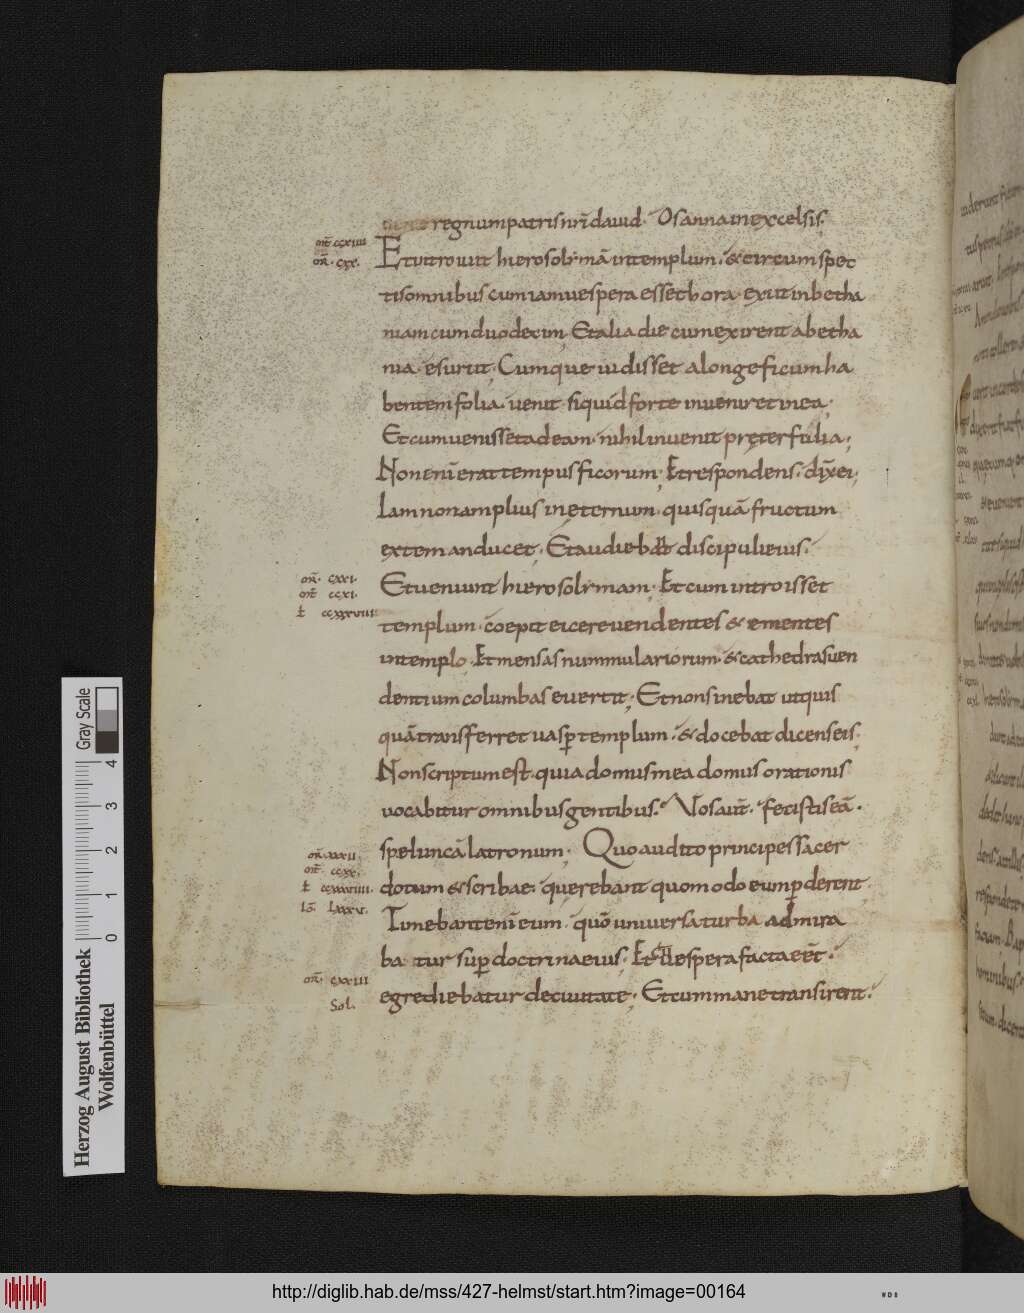 regnum patris nr̄i dauid· Osanna in excelsis;
mt̄ ccxiiii
mr̄· cxx·
Et introiuit hierosolimā in templum· & circumspec
tis omnibus cum iam uespera esset hora· exiit in betha
niam cum duodecim; Et alia die cum exirent a betha
nia· esuriit; Cumque uidisset a longe ficum ha
bentem folia· uenit· siquid forte inueniret in ea;
Et cum uenisset ad eam· nihil inuenit pręter folia;
Non enī erat tempus ficorum; Et respondens· dix̄ ei;
Iam non amplius in ęternum· quisquā fructum
ex te manducet; Et audiebant discipuli eius;
mr̄· cxxi·
mt̄ ccxi·
ł ccxxxviii·
Et ueniunt hierosolimam; Et cum introisset
templum· coepit eicere uendentes & ementes
in templo; Et mensas nummulariorum· & cathedras uen
dentium columbas euertit; Et non sinebat ut quis
quā transferret uas ꝑ templum· & docebat dicens eis;
Non scriptum est· quia domus mea domus orationis
uocabitur omnibus gentibus· Vos aut̄· fecistis eā·
speluncā latronum; Quo audito principes sacer
mr̄· xxxii
mt̄· ccxx·
ł ccxxxviiii·
Io̅· lxxxv·
dotum & scribae· querebant quomodo eum ꝑderent·
Timebant enī eum· quō uniuersa turba admira
batur suꝑ doctrina eius; Et cū uespera facta eēt·
mr̄· cxxiii
Sol·
egrediebatur de ciuitate; Et cum mane transirent·
Gray Scale
0 1 2 3 4
Herzog August Bibliothek
Wolfenbüttel
http://diglib.hab.de/mss/427-helmst/start.htm?image=00164